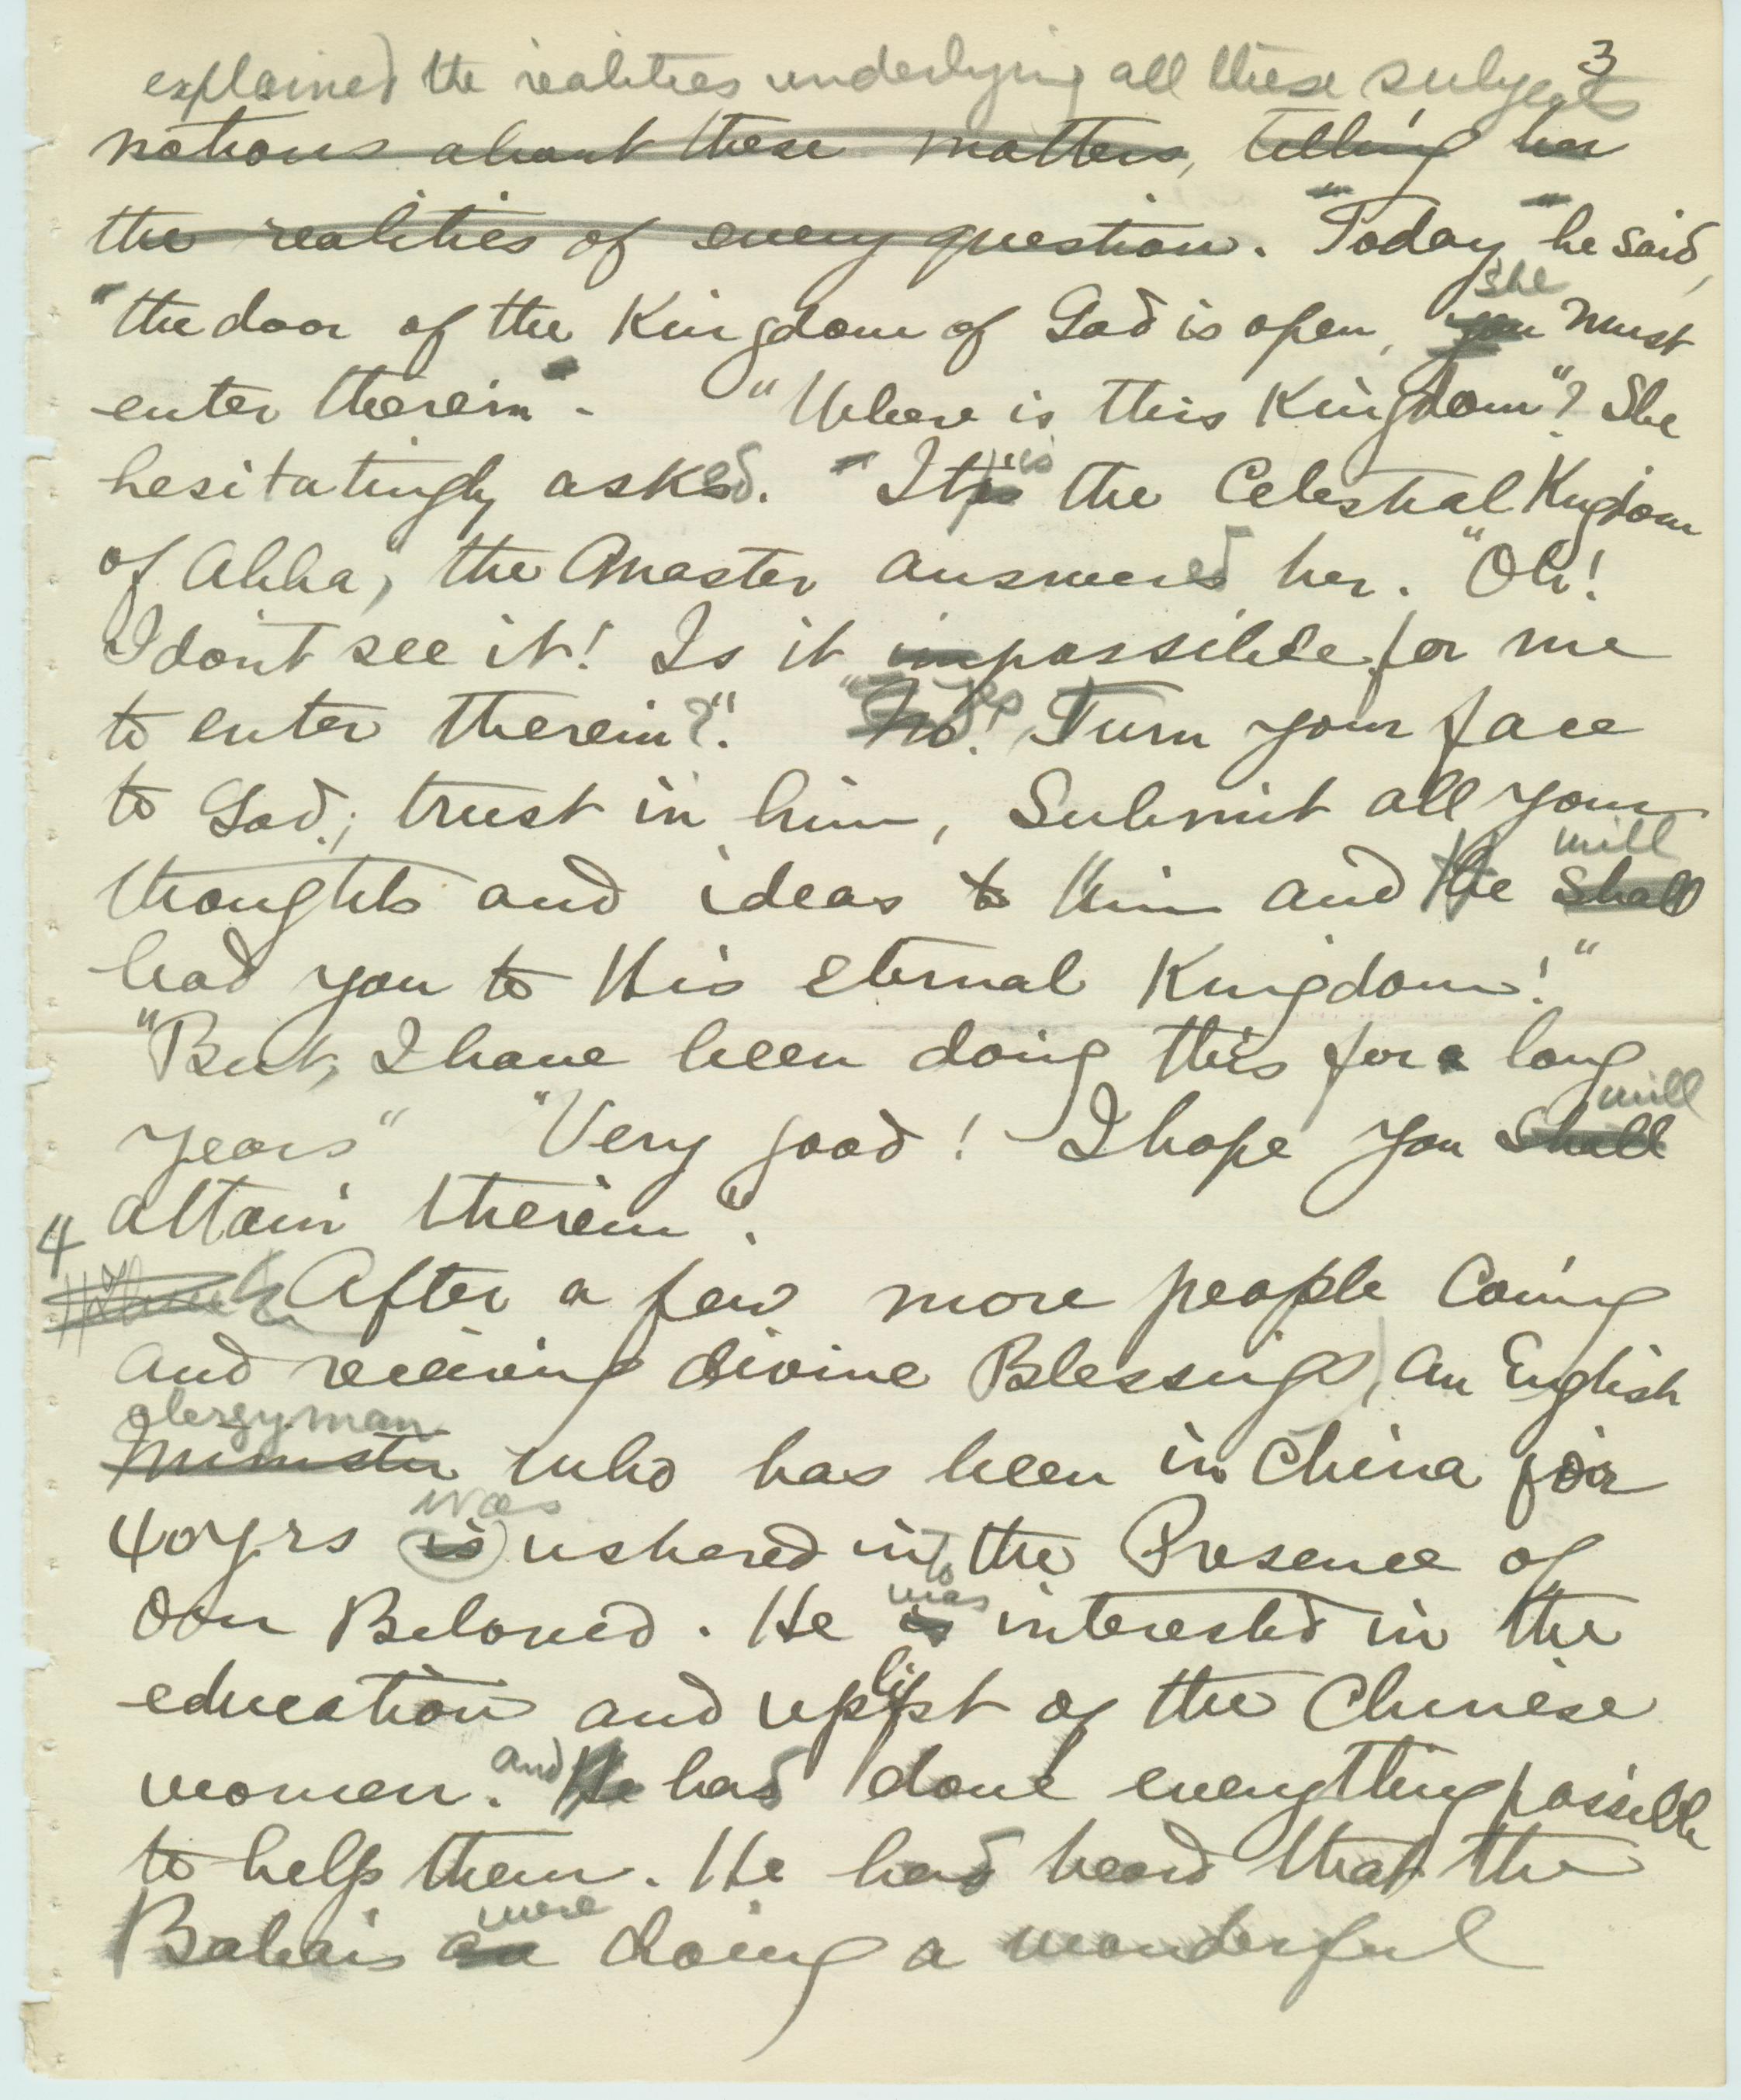 3
explained the realities underlying all these subjects
notions about these matters, telling her
the realities of every question. "Today" he said,
she
"the door of the Kingdom of God is open, you must
enter therein". "Where is this Kingdom"? She
is
hesitatingly asked. "It is the Celestial Kingdom
of Abha", the Master answered her. "Oh!
I don't see it! Is it impossible for me
Yes
to enter therein?". "No! Turn your face
to God; trust in him, Submit all your
will
thoughts and ideas to Him and He shall
lead you to His eternal Kingdom!"
"But, I have been doing this for a long
will
years" "Very good! I hope you shall
attain therein".
4
After a few more people coming
and receiving divine Blessings, an English
clergyman
Minister who has been in China for
was
40 yrs is ushered into the Presence of
was
Our Beloved. He is interested in the
education and uplift of the Chinese
and
women. He had done everything possible
to help them. He had heard that the
were
Bahais are doing a wonderful